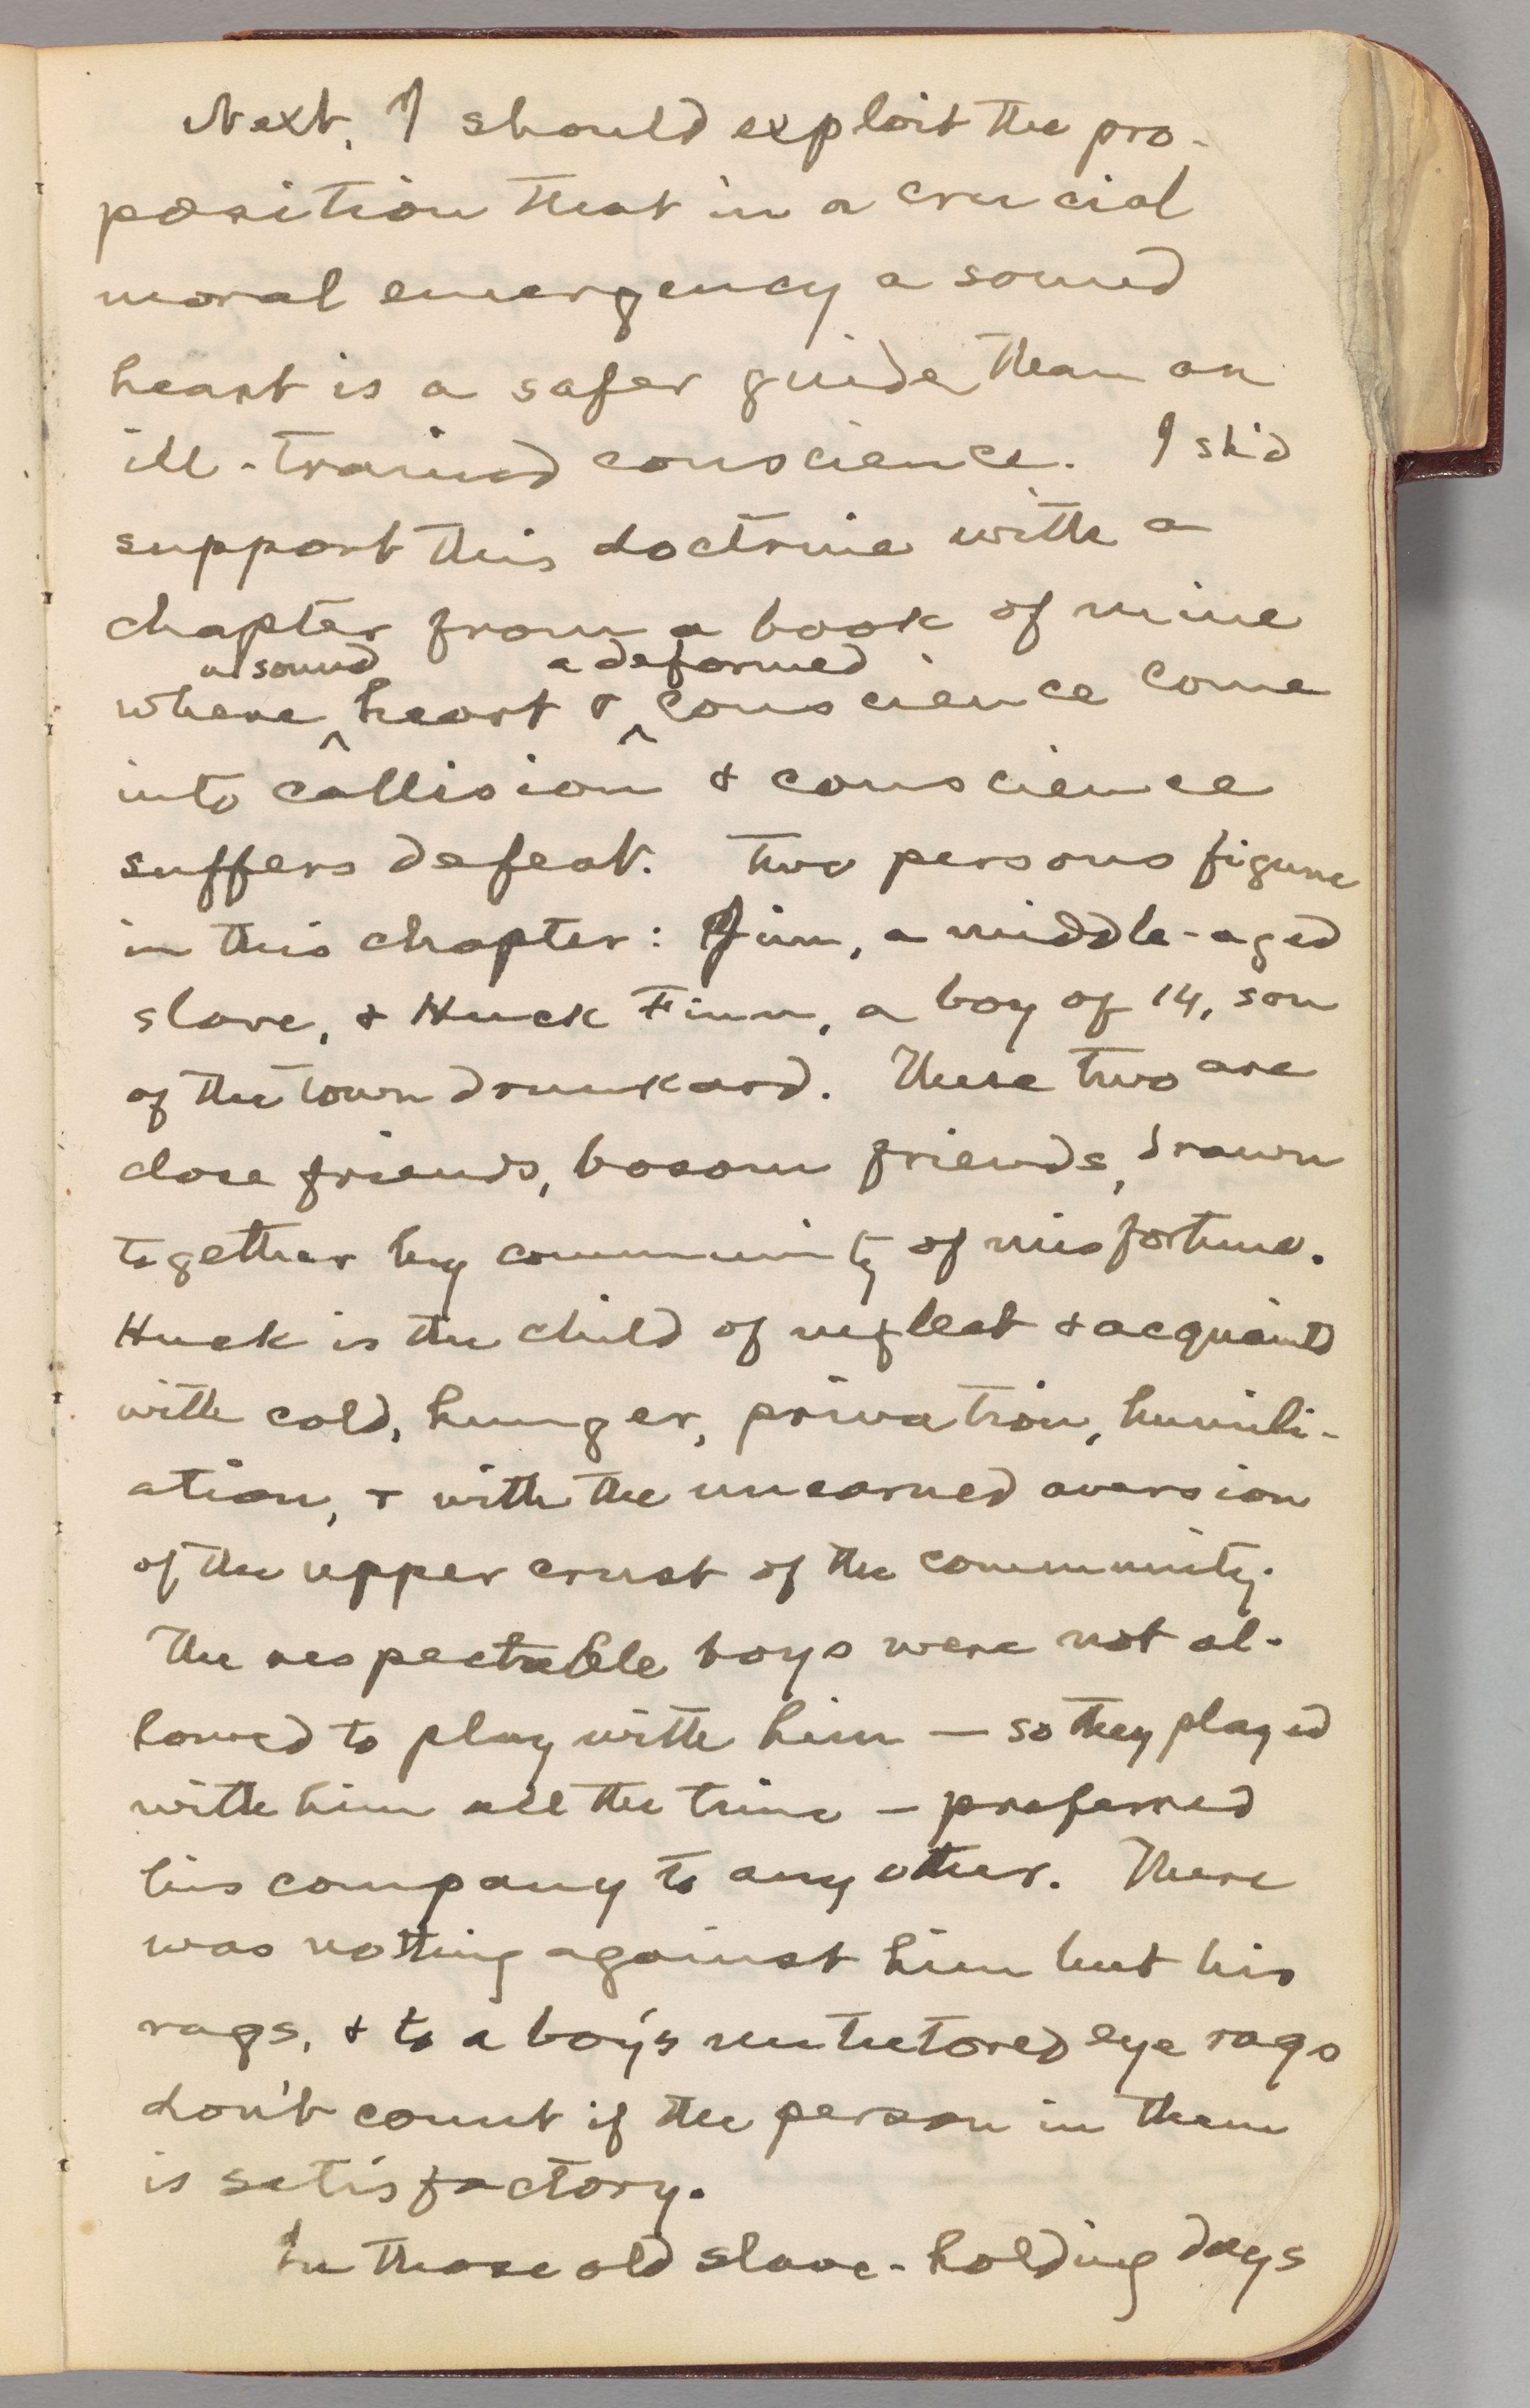 Next, I should exploit the pro-
position that in a crucial
moral emergency a sound
heart is a safer guide than an
ill-trained conscience. I sh'd
support this doctrine with a
chapter from a book of mine
a sound a deformed
where heart & conscience come
into collision & conscience
suffers defeat. Two persons figure
in this chapter: Jim, a middle-aged
slave, & Huck Finn, a boy of 14, son
of the town drunkard. These two are
close friends, bosom friends, drawn
together by community of misfortune.
Huck is the child of neglect & acquainted
with cold, hunger, privation, humili-
ation, & with the unearned aversion
of the upper crust of the community.
The respectable boys were not al-
lowed to play with him — so they played
with him all the time — preferred
his company to any other. There
was nothing against him but his
rags, & to a boy's untutored eye rags
don't count if the person in them
is satisfactory.
In those old slave-holding days